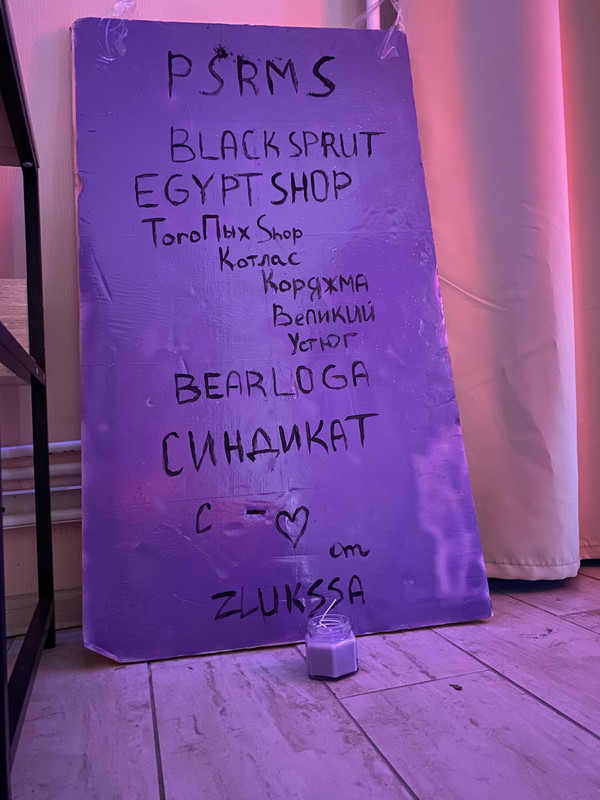 PSRMS
BLACK SPRUT
EGYPT SHOP
ТогоПых Shop
Котлас
Коряжма
Великий
Устюг
BEARLOGA
СИНДИКАТ
С - ♡
от
ZLUKSSA